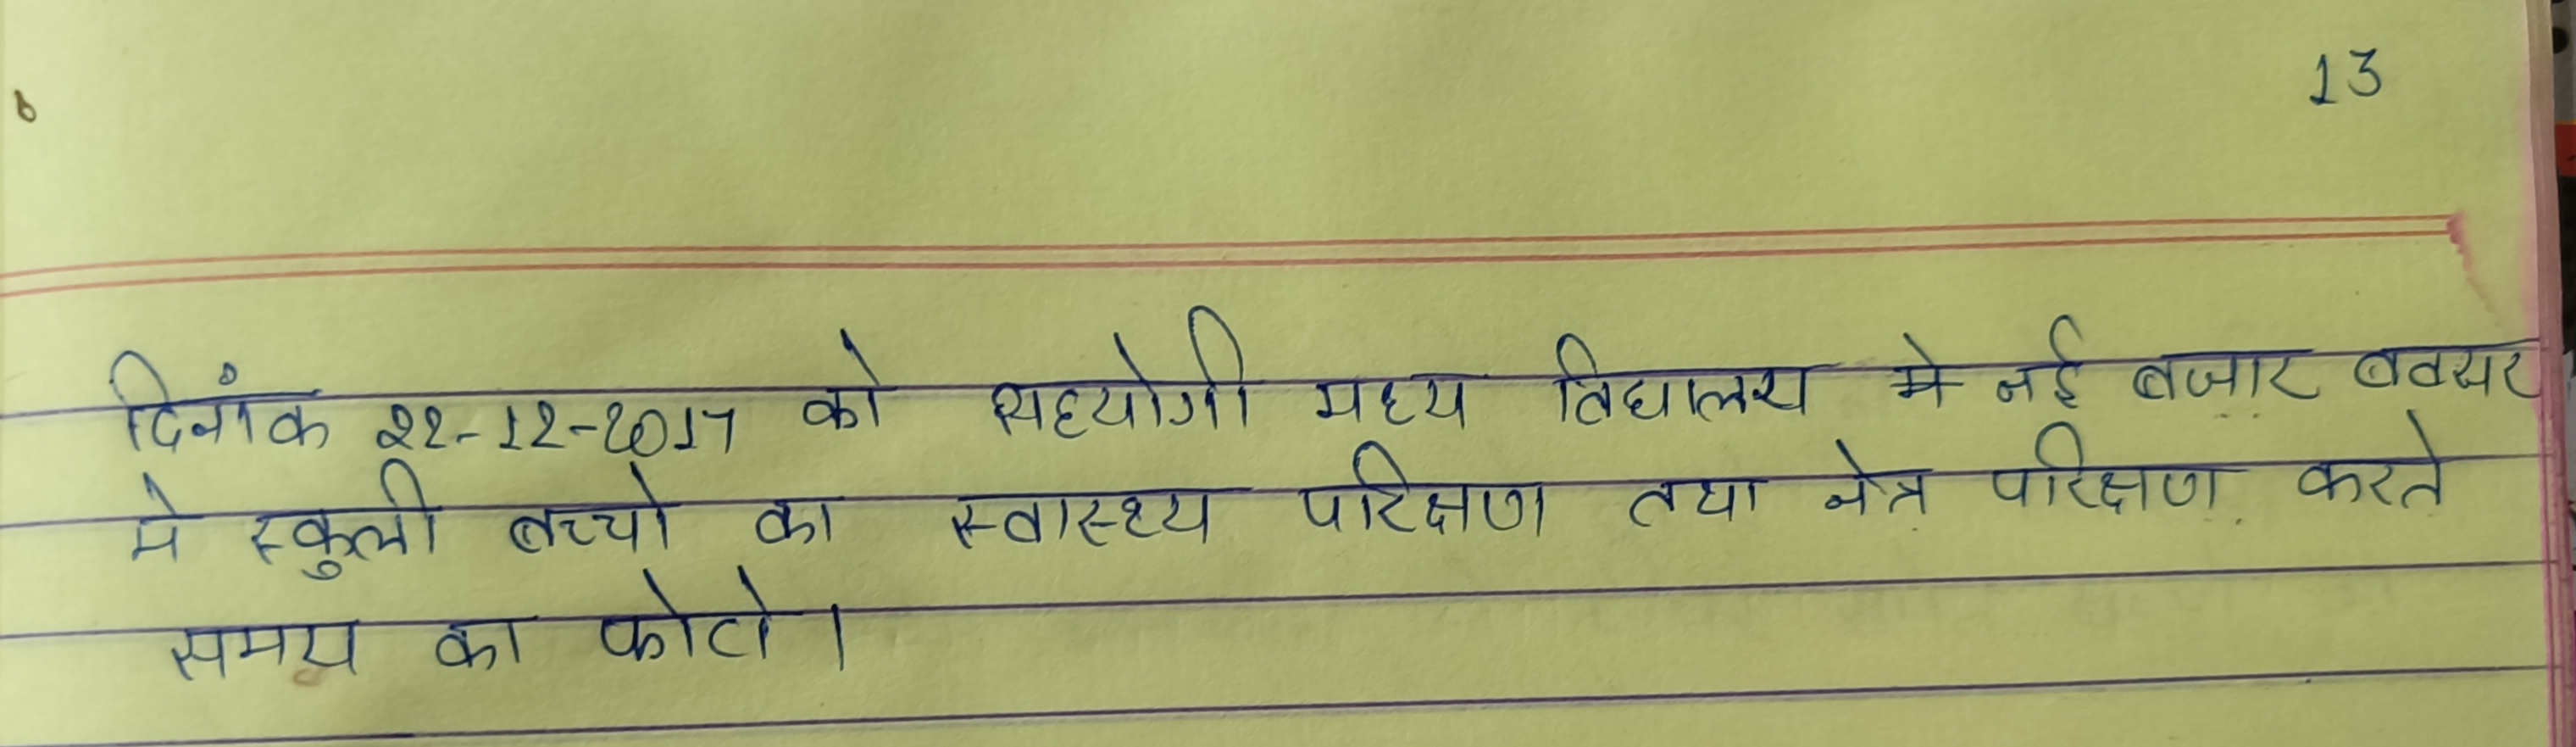 13
दिनांक 22-12-2017 को सहयोगी मध्य विद्यालय मे नई बजार बक्सर
मे स्कुली बच्चो का स्वास्थ्य परिक्षण तथा नेत्र परिक्षण करते
समय का फोटो।